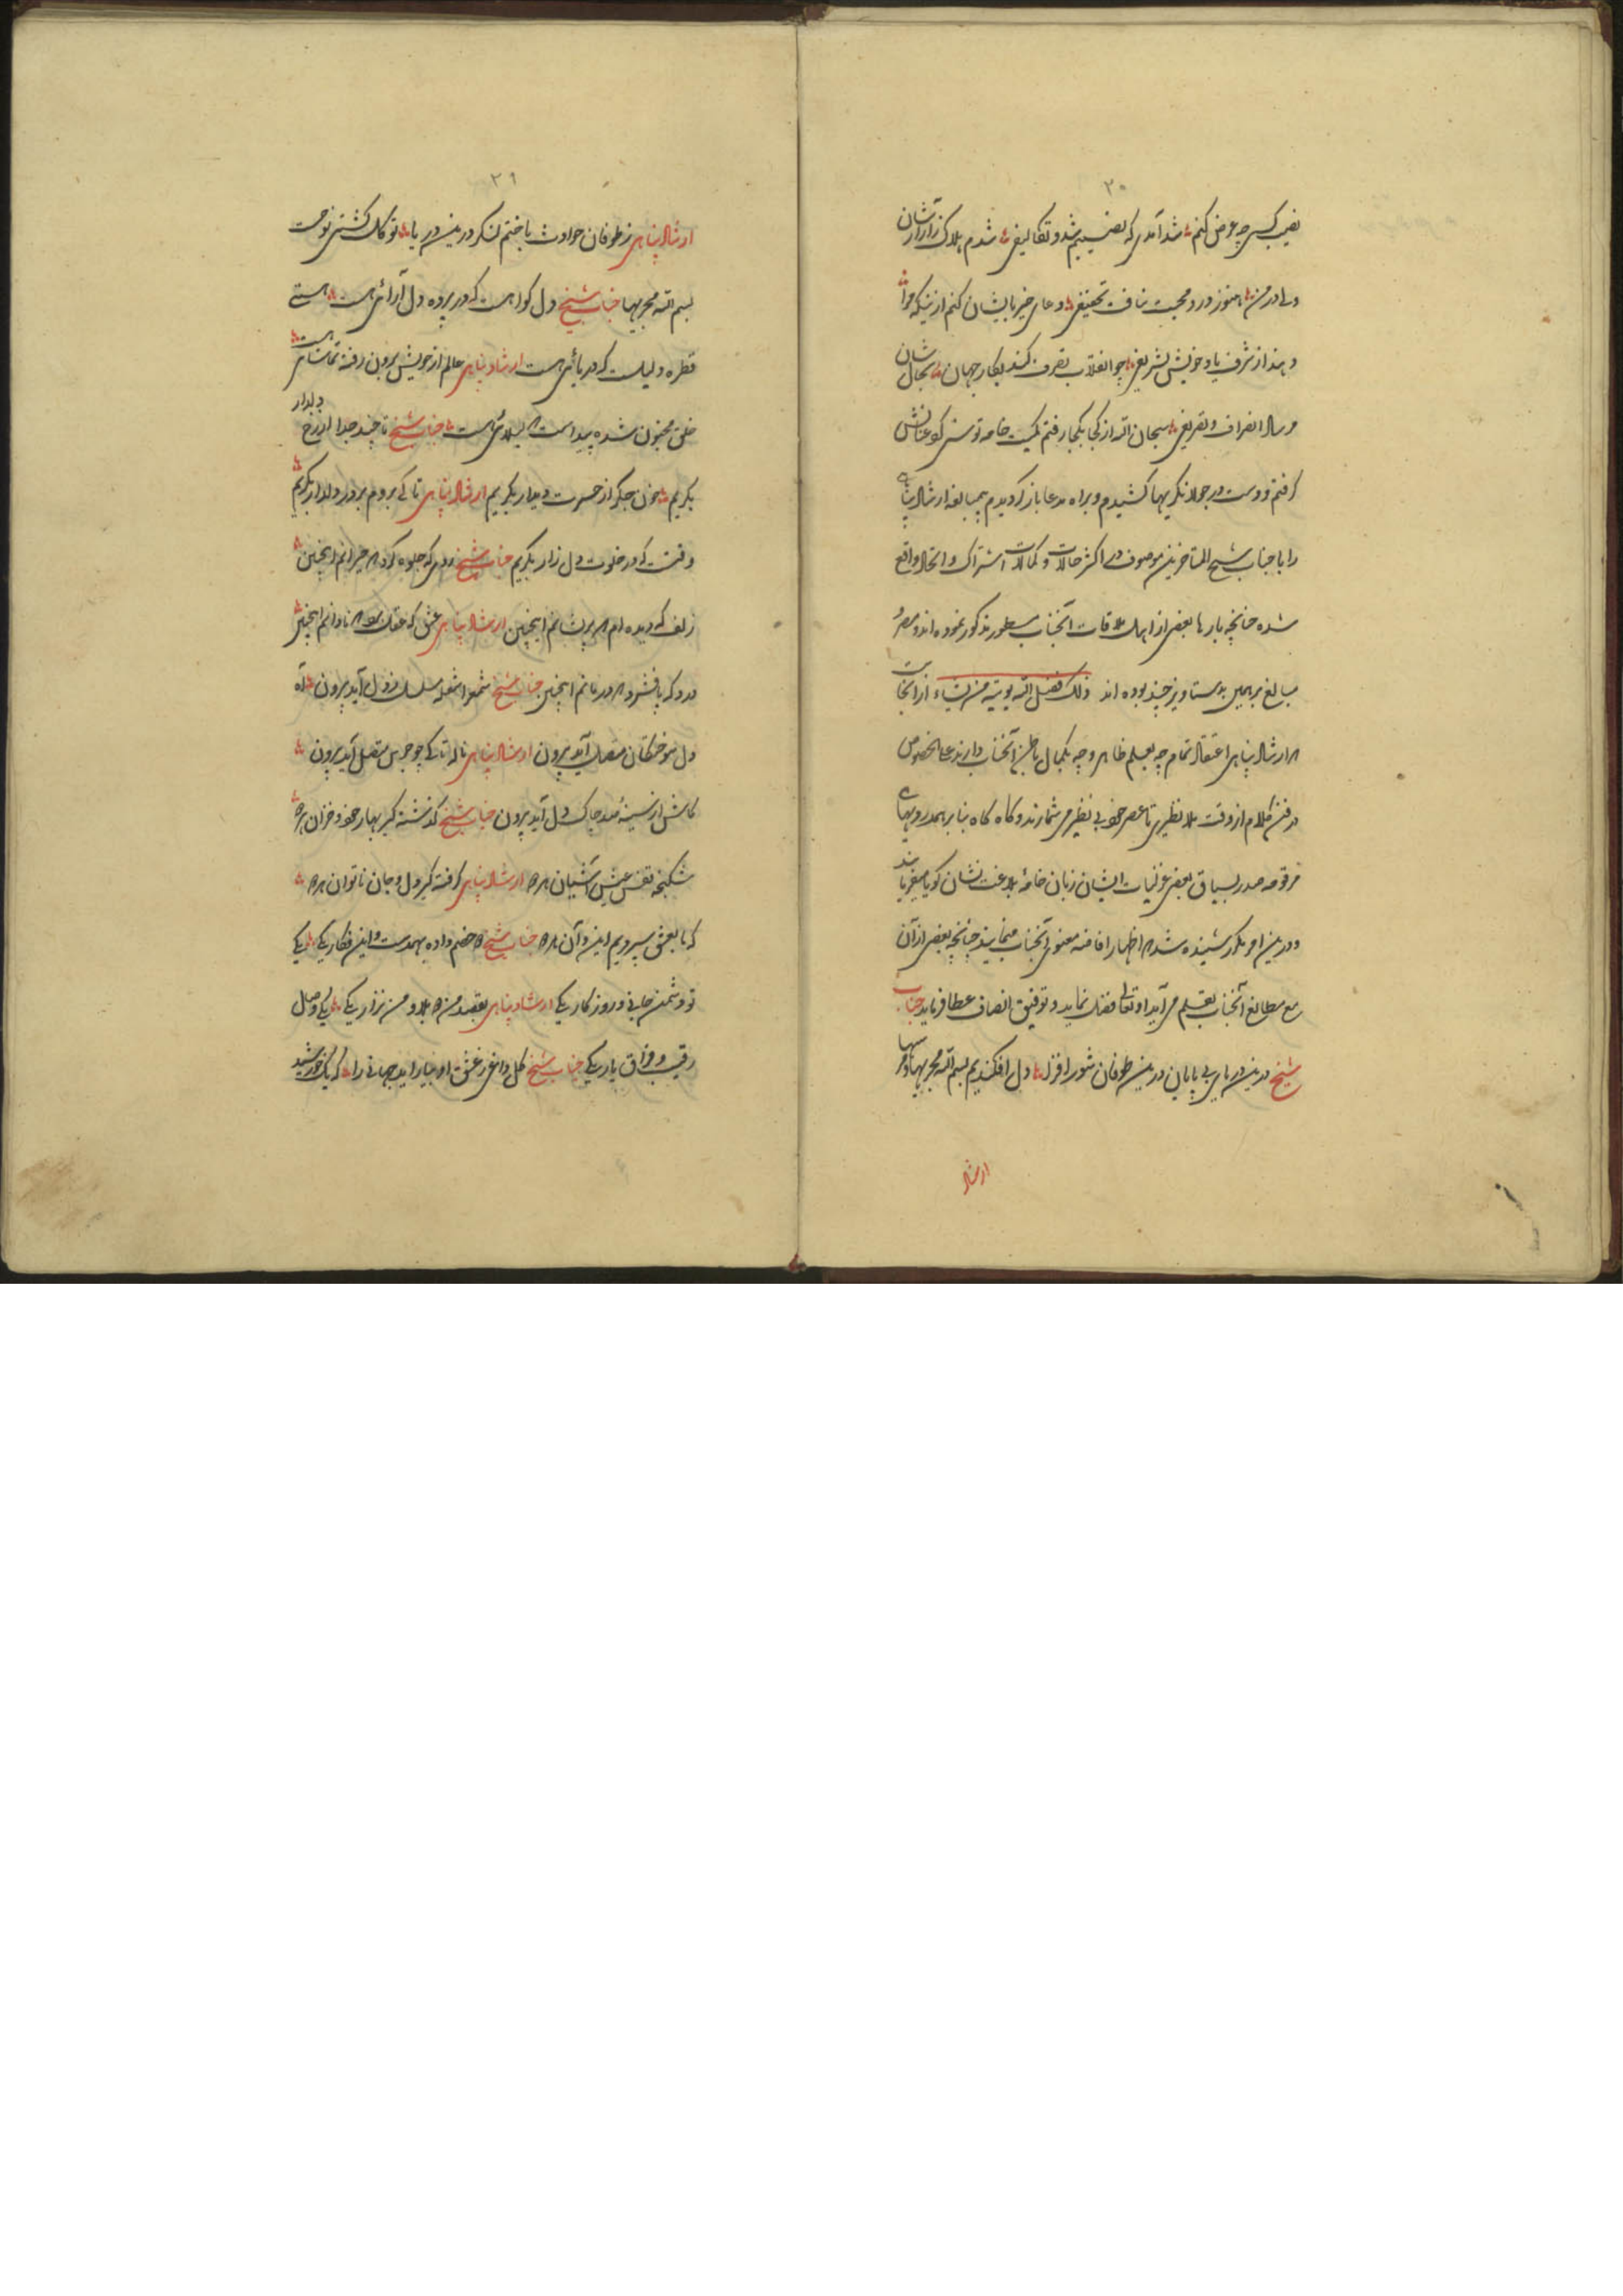 ۲۰
نصیب کسی چه عرض کنم شد آمدی که نصیبم شد و تکالیفی شدم هلاک ز آزارشان
ولی در من هنوز درد محبت نیافت تخفیفی دعای خیر بایشان کنم ازینکه مرا
دهند از شرف یاد خویش تشریفی چو انقلاب تصرف کند بکار جهان بحال شان
مرساد انصراف و تصریفی سبحان الله از کجا بکجا رفتم کمیت خامه توسنی کو عنانش
گرفتم و دست در جولانگریها کشیدم و براه مدعا باز گردیدم بمبالغه ارشاد پناهی
را با جناب شیخ المتاخرین موصوف در اکثر حالات و کمالات اشتراک و اتحاد واقع
شده چنانچه بارها بعضی از اهل ملاقات آنجناب بسطور مذکور نموده اند و مصر
مبالغ بر همین بدستاویز چند بوده اند ذلک فضل الله یوتیه من یشاء از آنجاست
که ارشاد پناهی اعتقاد تمام چه بعلم ظاهر و چه بکمال باطن آنجناب دارند علی الخصوص
در فن کلام از وقت ملا نظیری تا عصر خود بی نظیر می شمارند و گاه گاه بنا بر همدردیهای
مرقومه صدر بسیاق بعضی غزلیات ایشان زبان خامه بلاغت نشان گویا میفرمایند
و درین امر مکرر شنیده شد که اظهار افاضه معنوی آنجناب مینمایند چنانچه بعضی از آن
مع مطالع آنجناب بقلم می آید او تعالی فضل نماید و توفیق انصاف عطا فرماید جناب
شیخ درین دریای بی پایان درین طوفان شور افزا دل افکندیم بسم الله مجریها و مرسیها
ارشاد
۲۱
ارشاد پناهی ز طوفان حوادث باختم لنگر درین دریا توکل کشتی نوحست
بسم الله مجریها جناب شیخ دل گواهست که در پرده دل آرائی هست هستی
قطره دلیلست که دریائی هست ارشاد پناهی عالم از خویش برون رفته تماشائی هست
خلق مجنون شده پیداست که لیلائی هست جناب شیخ تا چند جدا از رخ دلدار
بگریم خون جگر از حسرت دیدار بگریم ارشاد پناهی تا کی بروم بر در دلدار بگریم
وقتست که در خلوت دل زار بگریم جناب شیخ روی که جلوه کرد که حیرانم اینچنین
زلف که دیده ام که پریشانم اینچنین ارشاد پناهی عشق که عقل برد که نادانم اینچنین
درد که پا فشرد که درمانم اینچنین جناب شیخ شمع را شعله مسلسل ز دل آید بیرون آه
دل سوختگان متصل آید بیرون ارشاد پناهی ناله تا کی چو جرس متصل آید بیرون
کاش از سینه صد چاک دل آید بیرون جناب شیخ گذشته گیر بهار خود و خزان همه
شکنجه قفس عیش آشیان همه ارشاد پناهی گرفته گیر دل و جان ناتوان همه
که ما بعشق سپردیم این و آن همه جناب شیخ خصم داده بهم دست و این فگار یکی یکی
تو دشمن جانی و روزگار یکی ارشاد پناهی بقصد من بلا و من نزار یکی یکی وصال
رقیب و فراق یار یکی جناب شیخ گل داغی ز عشق او بیاراید جهانی را که یک خورشید